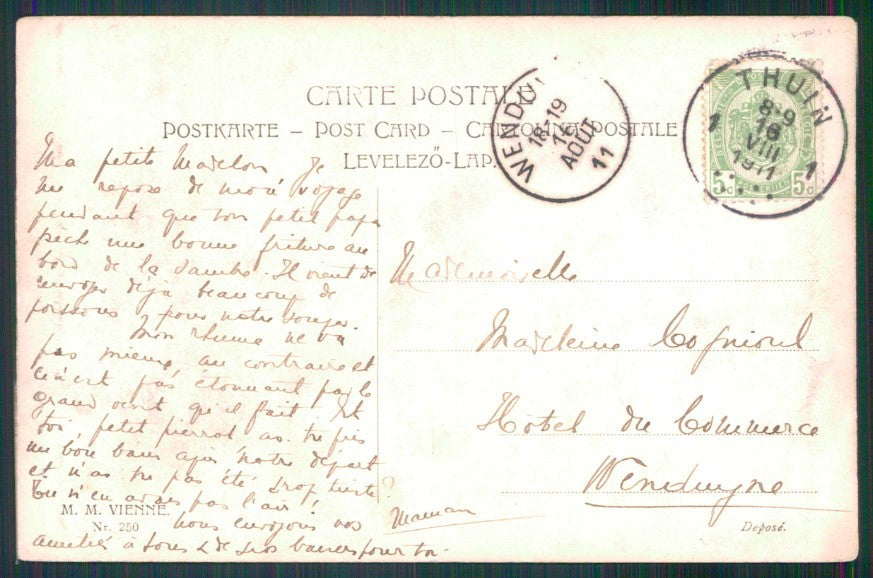 CARTE POSTALE
POSTKARTE – POST CARD – CARTOLINA POSTALE
LEVELEZŐ-LAP.
WENDU
18-19
16
AOUT
11
THUIN
8-9
16
VIII
1911
1 1
5c 5c
Ma petite Madelon Je
me repose de mon voyage
pendant que ton petit papa
pêche une bonne friture au
bord de la Sambre. Il vient de
envoyer déjà beaucoup de
poissons pour notre souper.
Mon rhume ne va
pas mieux au contraire et
ce n'est pas étonnant par le
grand vent qu'il fait. Et
toi, petit pierrot as-tu pris
un bon bain après notre départ
et n'as-tu pas été trop triste?
Tu n'en avais pas l'air!
Nous envoyons nos
amitiés à tous & de gros baisers pour toi.
Maman
Mademoiselle
Madeleine Cognioul
Hôtel du Commerce
Wenduyne
M. M. VIENNE.
Nr. 250
Deposé.